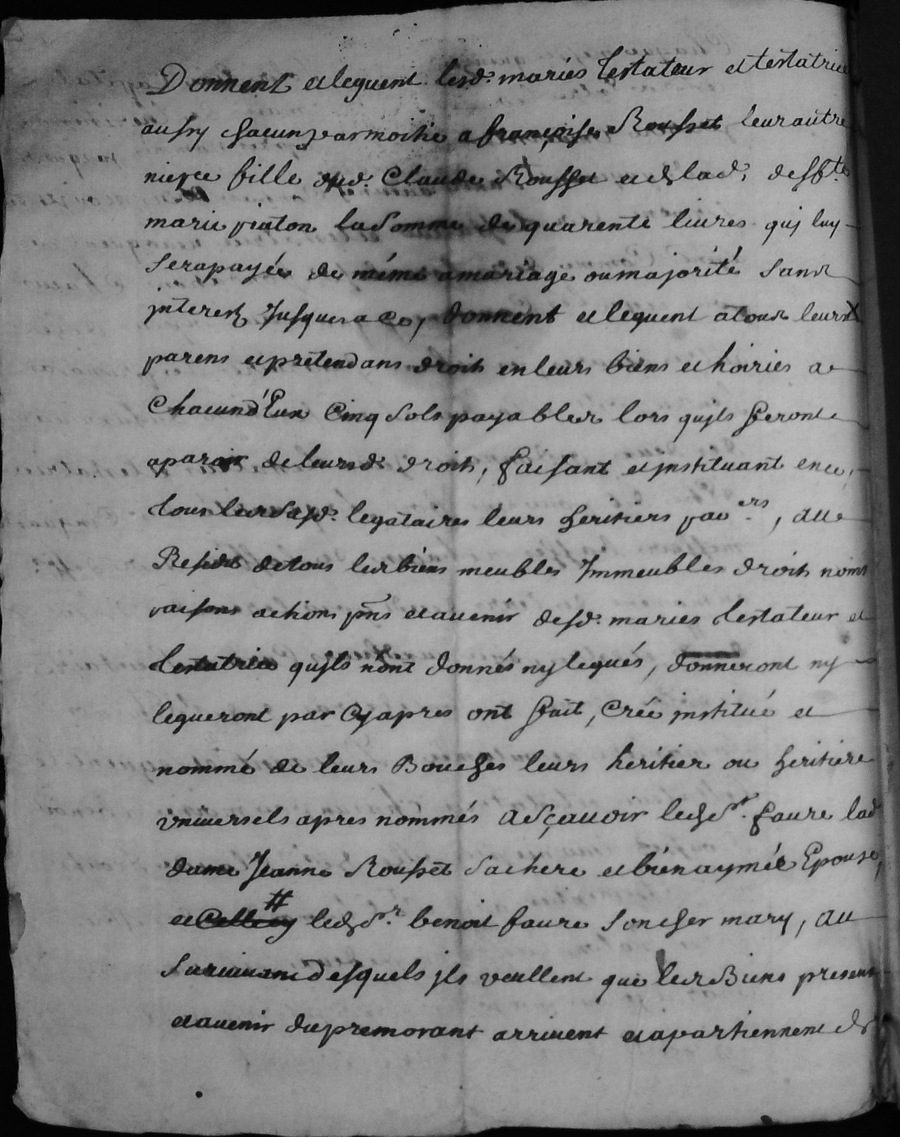 Donnent et leguent lesd. mariés testateur et testatrice
aussy chacun par moitié a françoise Rousset leur autre
niepce fille dud. Claude Rousset et de lad. deffte
marie piaton la Somme de quarente livres qui luy
Sera payée de méme a mariage ou majorité sans
jnterest Jusques a ce, donnent et leguent à tous leurs
parens et prétendans droit en leurs biens et hoiries a
Chacun d'Eux Cinq Sols payables lors qu'jls feront
aparoir de leursd. droits, faisant et jnstituant en ce,
tous les Susd. legataires leurs heritiers pauers, au
Residu de tous les biens meubles Jmmeubles droits noms
raisons actions pns et avenir desd. mariés testateur et
testatrice qu'jls n'ont donnés ny legués, donneront ny
legueront par Cy apres ont fait, Créé jnstitué et
nommé de leurs Bouches leurs héritier ou heritiere
vniversels apres nommés ascavoir led. Sr. faure lad
dame Jeanne Rousset sa chere et bien aymée Epouse,
et Celle cy # led. Sr. benoit faure Son cher mary, au
Survivant desquels jls veullent que les Biens presens
et avenir du premorant arrivent et apartiennent de